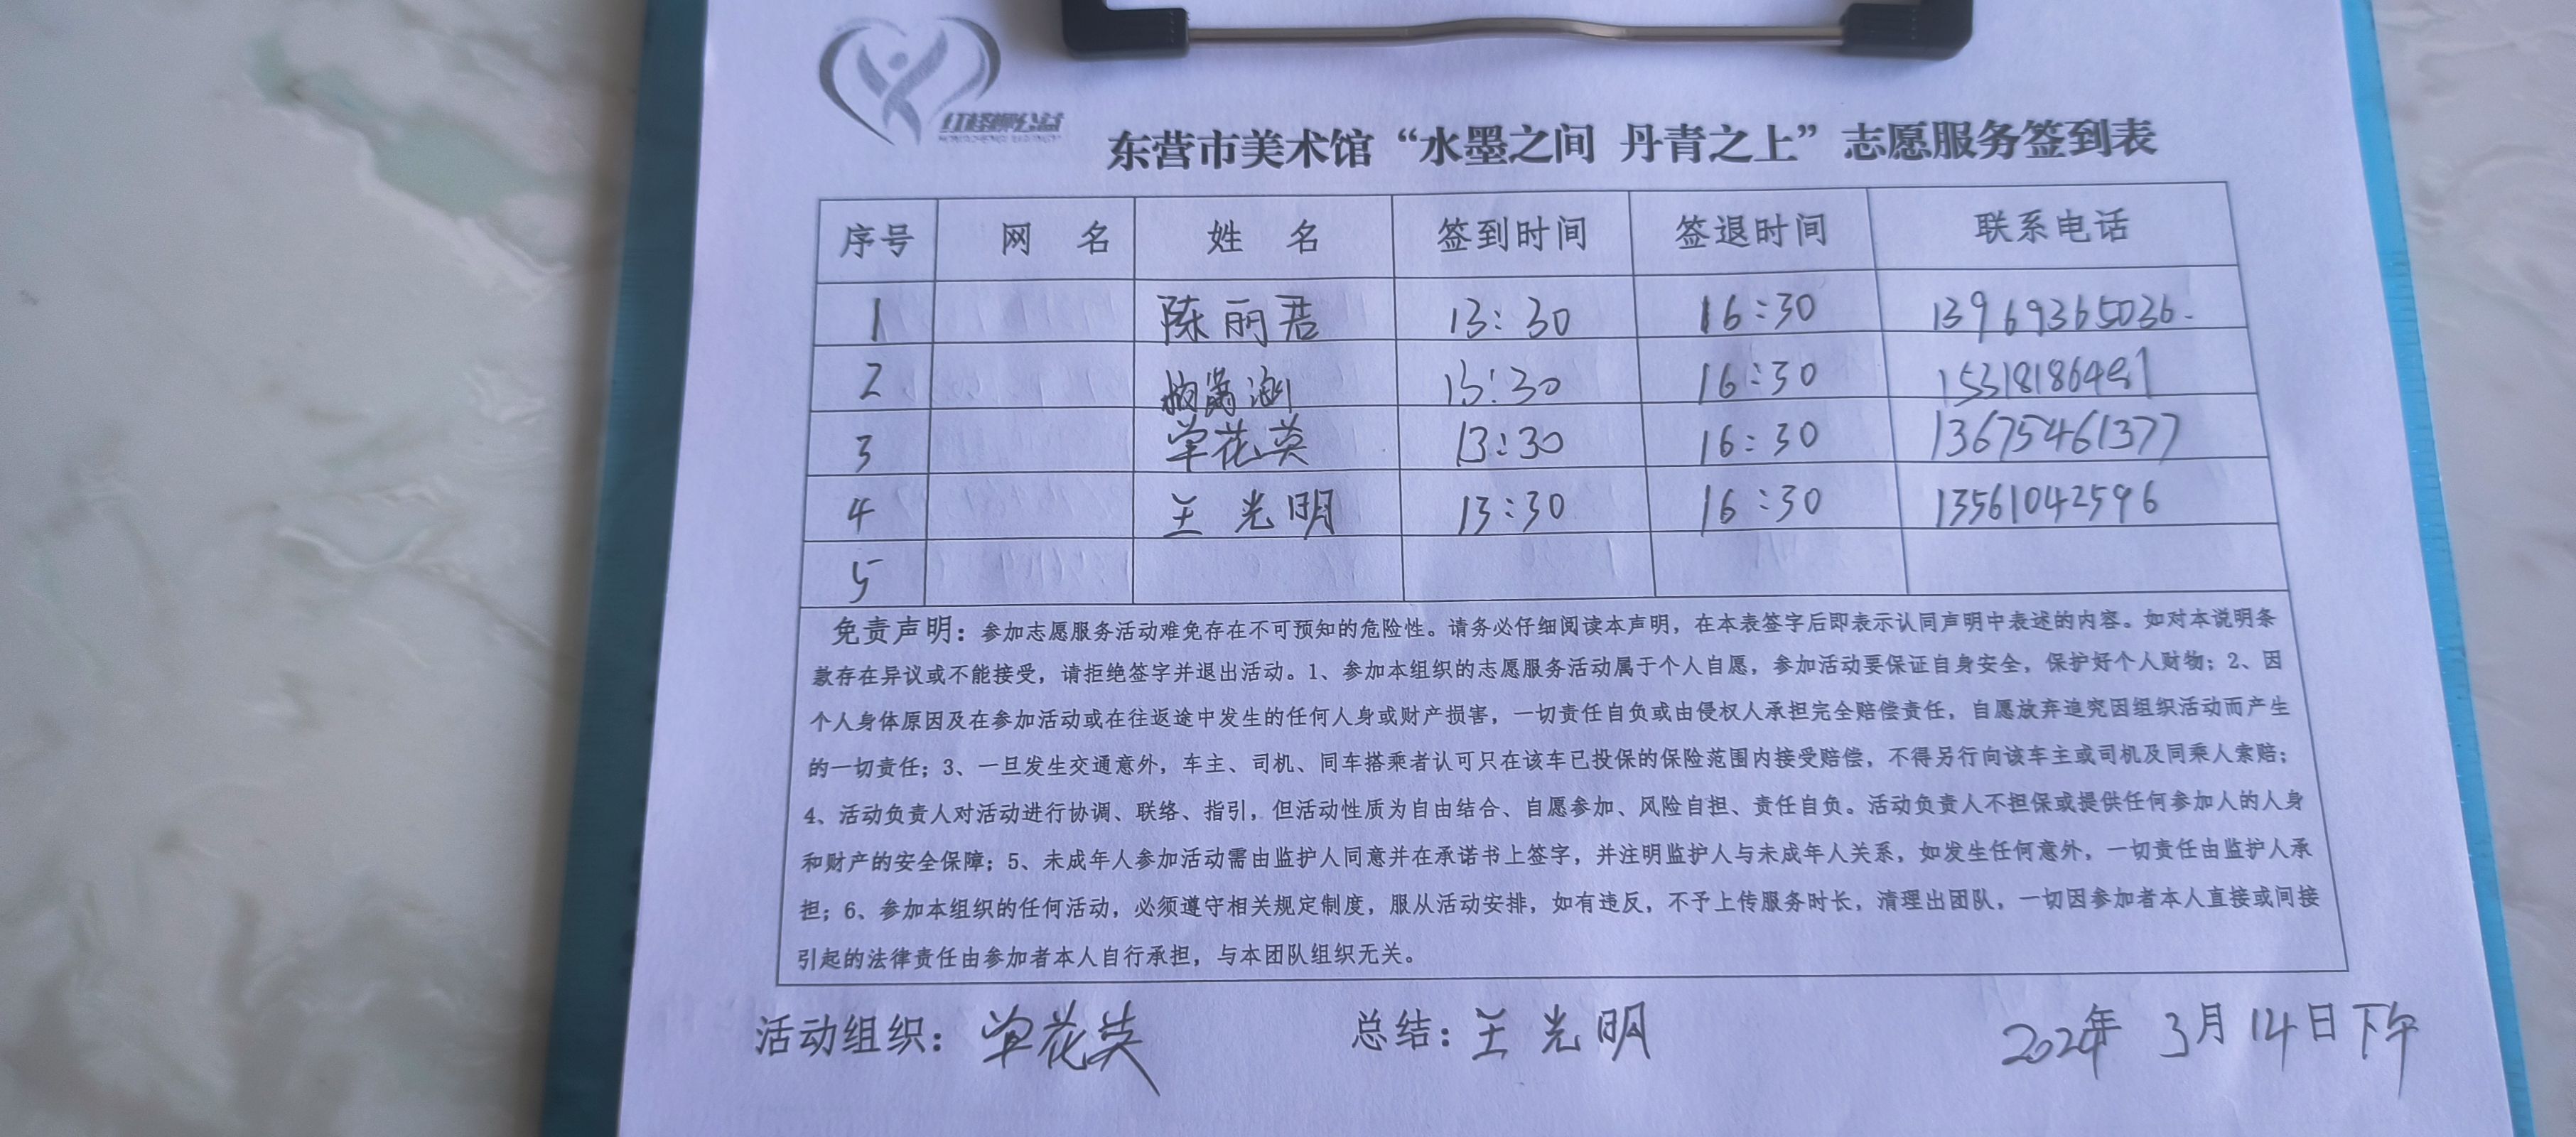 红柽柳公益
东营市美术馆“水墨之间 丹青之上”志愿服务签到表
序号 网 名 姓 名 签到时间 签退时间 联系电话
1 陈丽君 13:30 16:30 13969365036.
2 13:30 16:30 15318186481
3 单花英 13:30 16:30 13675461377
4 王光明 13:30 16:30 13561042596
5
免责声明：参加志愿服务活动难免存在不可预知的危险性。请务必仔细阅读本声明，在本表签字后即表示认同声明中表述的内容。如对本说明条
款存在异议或不能接受，请拒绝签字并退出活动。1、参加本组织的志愿服务活动属于个人自愿，参加活动要保证自身安全，保护好个人财物；2、因
个人身体原因及在参加活动或在往返途中发生的任何人身或财产损害，一切责任自负或由侵权人承担完全赔偿责任，自愿放弃追究因组织活动而产生
的一切责任；3、一旦发生交通意外，车主、司机、同车搭乘者认可只在该车已投保的保险范围内接受赔偿，不得另行向该车主或司机及同乘人索赔；
4、活动负责人对活动进行协调、联络、指引，但活动性质为自由结合、自愿参加、风险自担、责任自负。活动负责人不担保或提供任何参加人的人身
和财产的安全保障；5、未成年人参加活动需由监护人同意并在承诺书上签字，并注明监护人与未成年人关系，如发生任何意外，一切责任由监护人承
担；6、参加本组织的任何活动，必须遵守相关规定制度，服从活动安排，如有违反，不予上传服务时长，清理出团队，一切因参加者本人直接或间接
引起的法律责任由参加者本人自行承担，与本团队组织无关。
活动组织：单花英 总结：王光明 2024年 3月14日下午